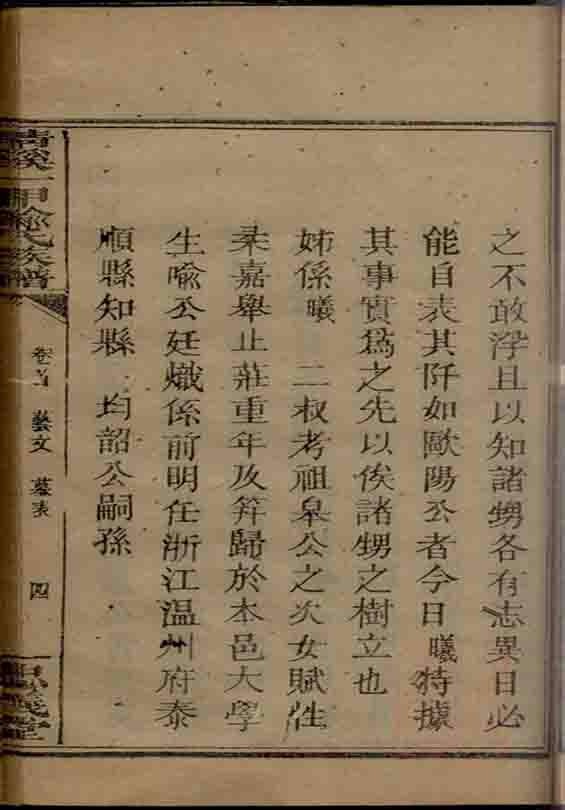 之不敢浮且以知諸甥各有志異日必
能自表其阡如歐陽公者今日曦特據
其事實爲之先以俟諸甥之樹立也
姊係曦 二叔考祖臯公之次女賦性
柔嘉舉止莊重年及笄歸於本邑大學
生喻公廷熾係前明任浙江温州府泰
順縣知縣 均韶公嗣孫
甲喻氏族譜
卷首 藝文 墓表 四